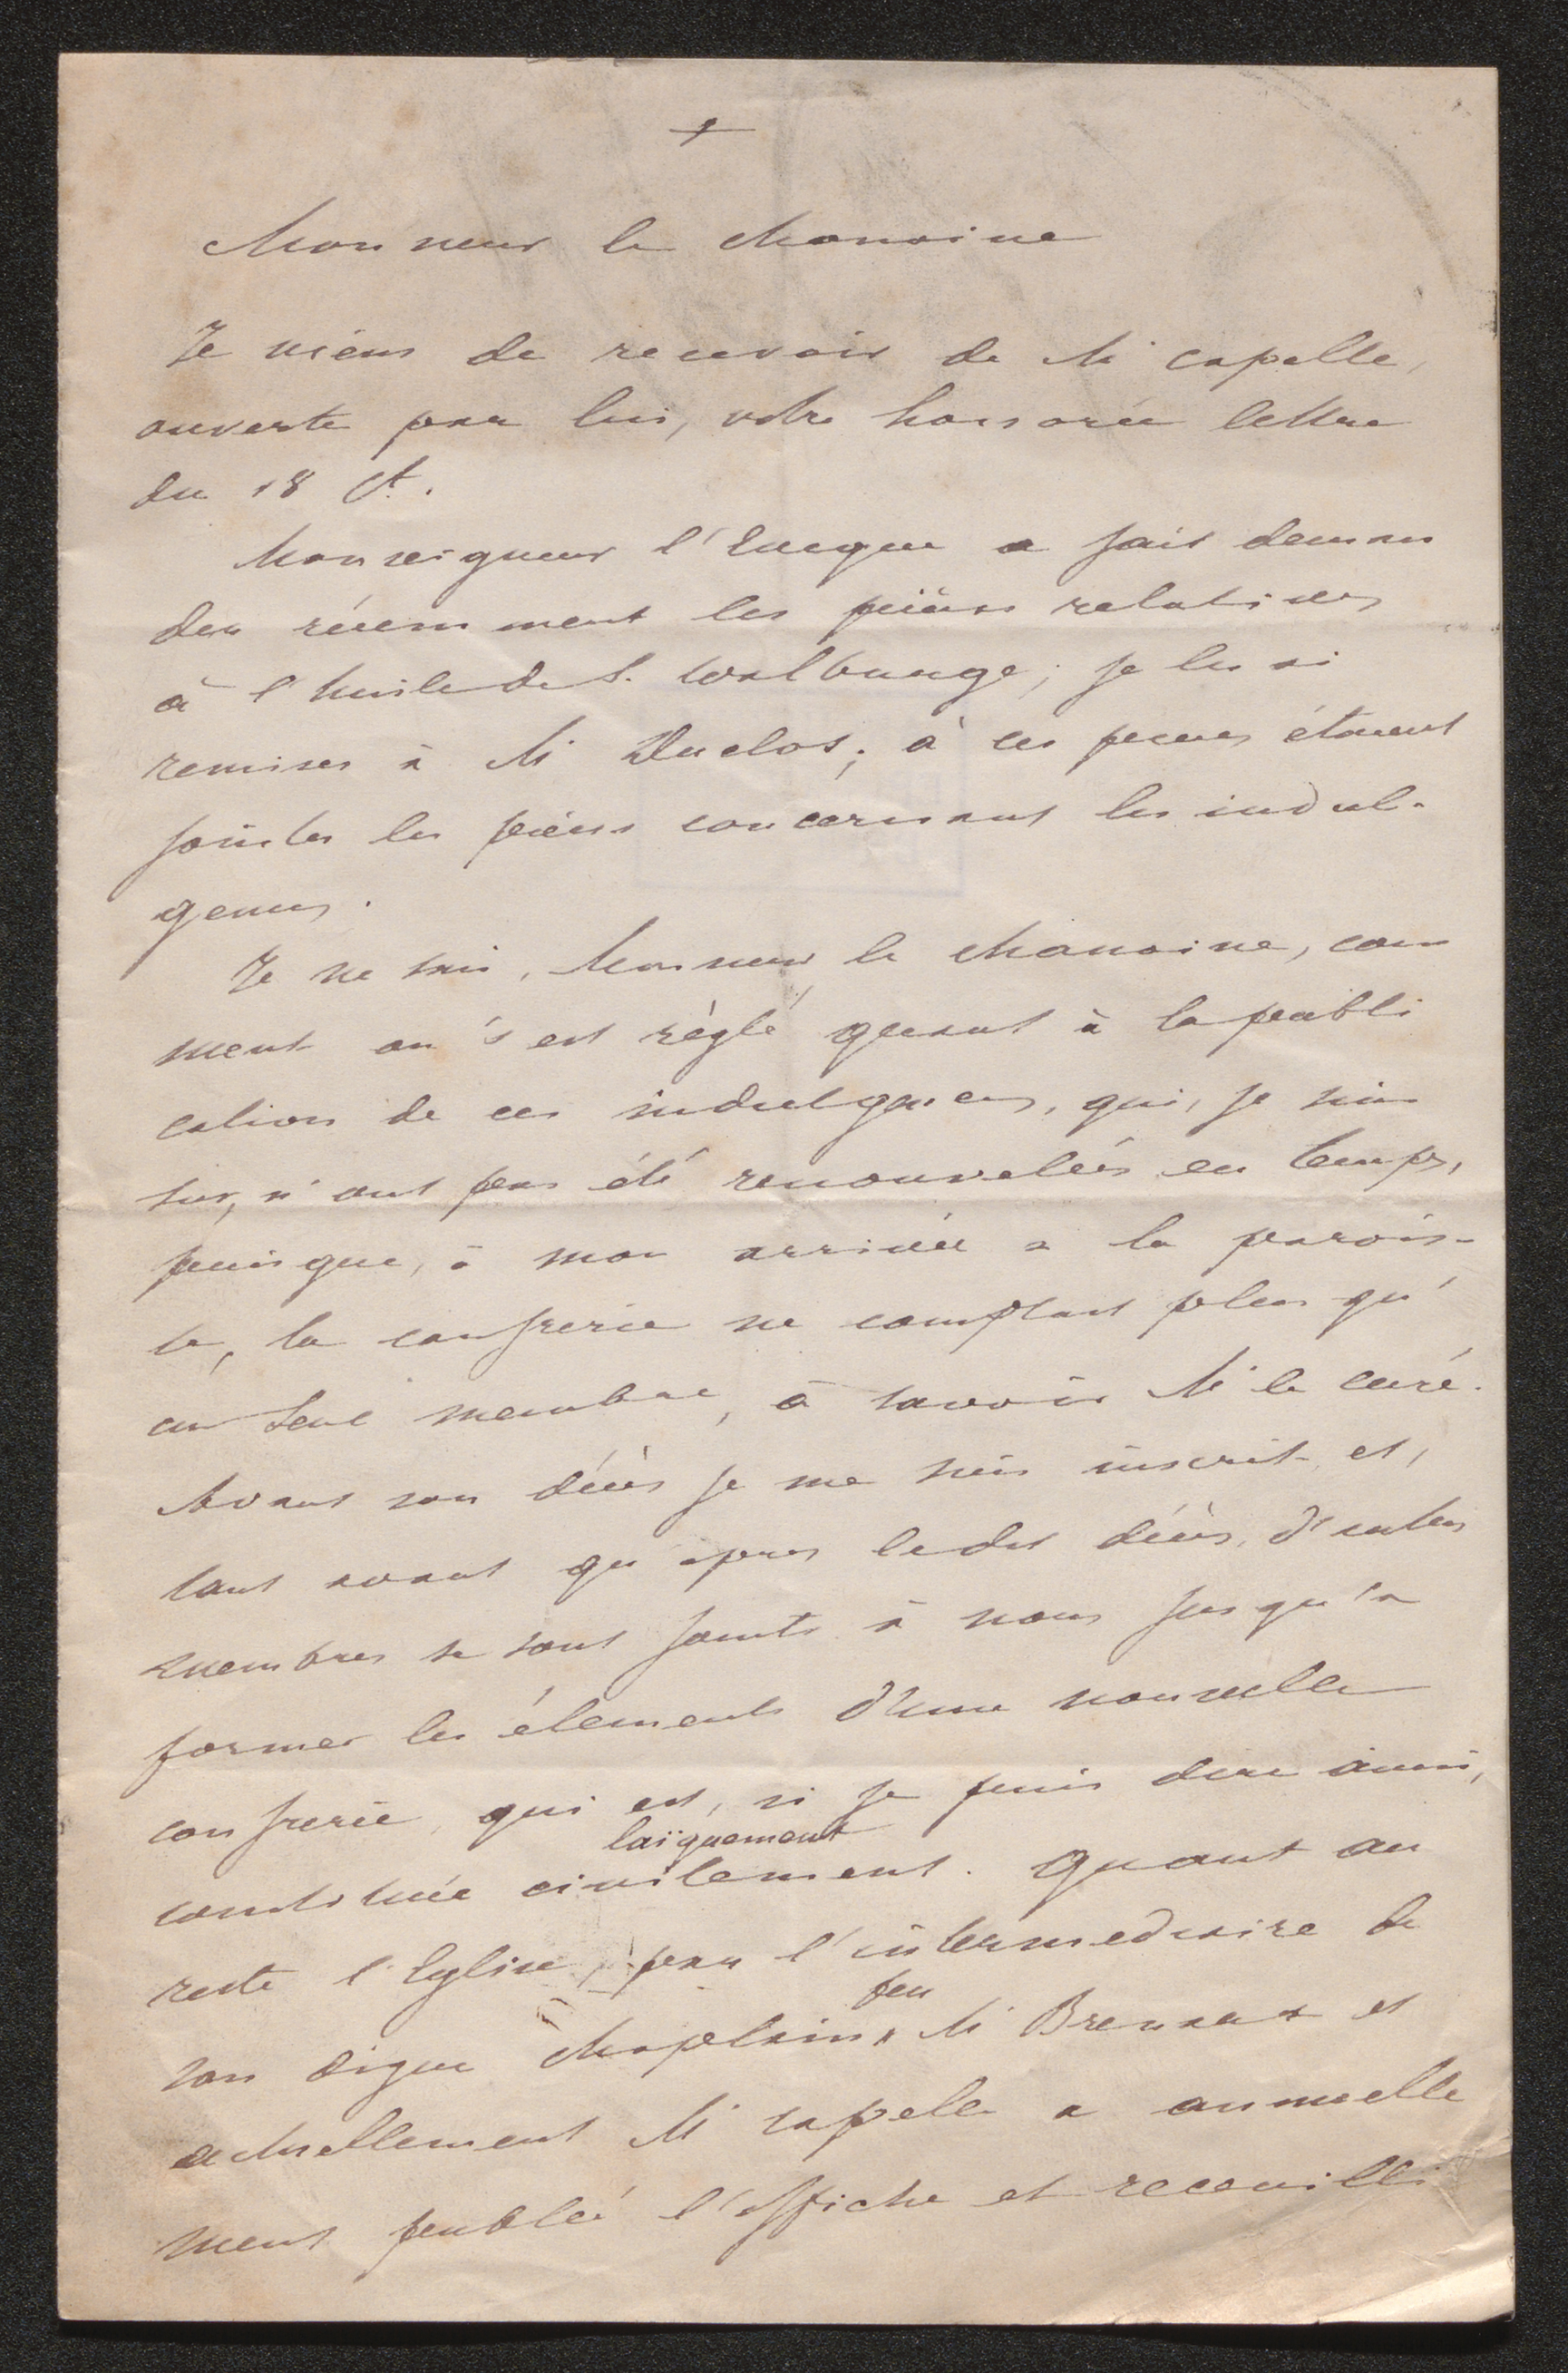 +
Monsieur le Chanoine
Je viens de recevoir de Mr Capelle,
ouverte par lui, votre honorée lettre
du 18 Ct.
Monseigneur l'Evêque a fait deman
der récemment les pièces relatives
à l'huile de S. Walburge; je les ai
remises à Mr Duclos; à ces pièces étaient
jointes les pièces concernant les indul-
gences.
Je ne sais, Monsieur le Chanoine, com
ment on s'est réglé quant à la publi
cation de ces indulgences, qui, je suis
sur, n'ont pas été renouvelées en temps,
puisque, à mon arrivée a la parois-
se, la confrerie ne comptait plus qu'
un seul membre, à savoir Mr le curé.
Avant son décès je me suis inscrit et,
tant avant qu'apres ledit décès, d'autres
membres se sont joints à nous jusqu'a
former les élements d'une nouvelle
confrerie, qui est, si je puis dire ainsi,
laïquement
constituée civilement. Quant au
reste l'Eglise, par l'intermediaire de
feu
son digne Chapelain, Mr Brensart et
actuellement Mr Capelle a annuelle
ment publié l'affiche et recueilli